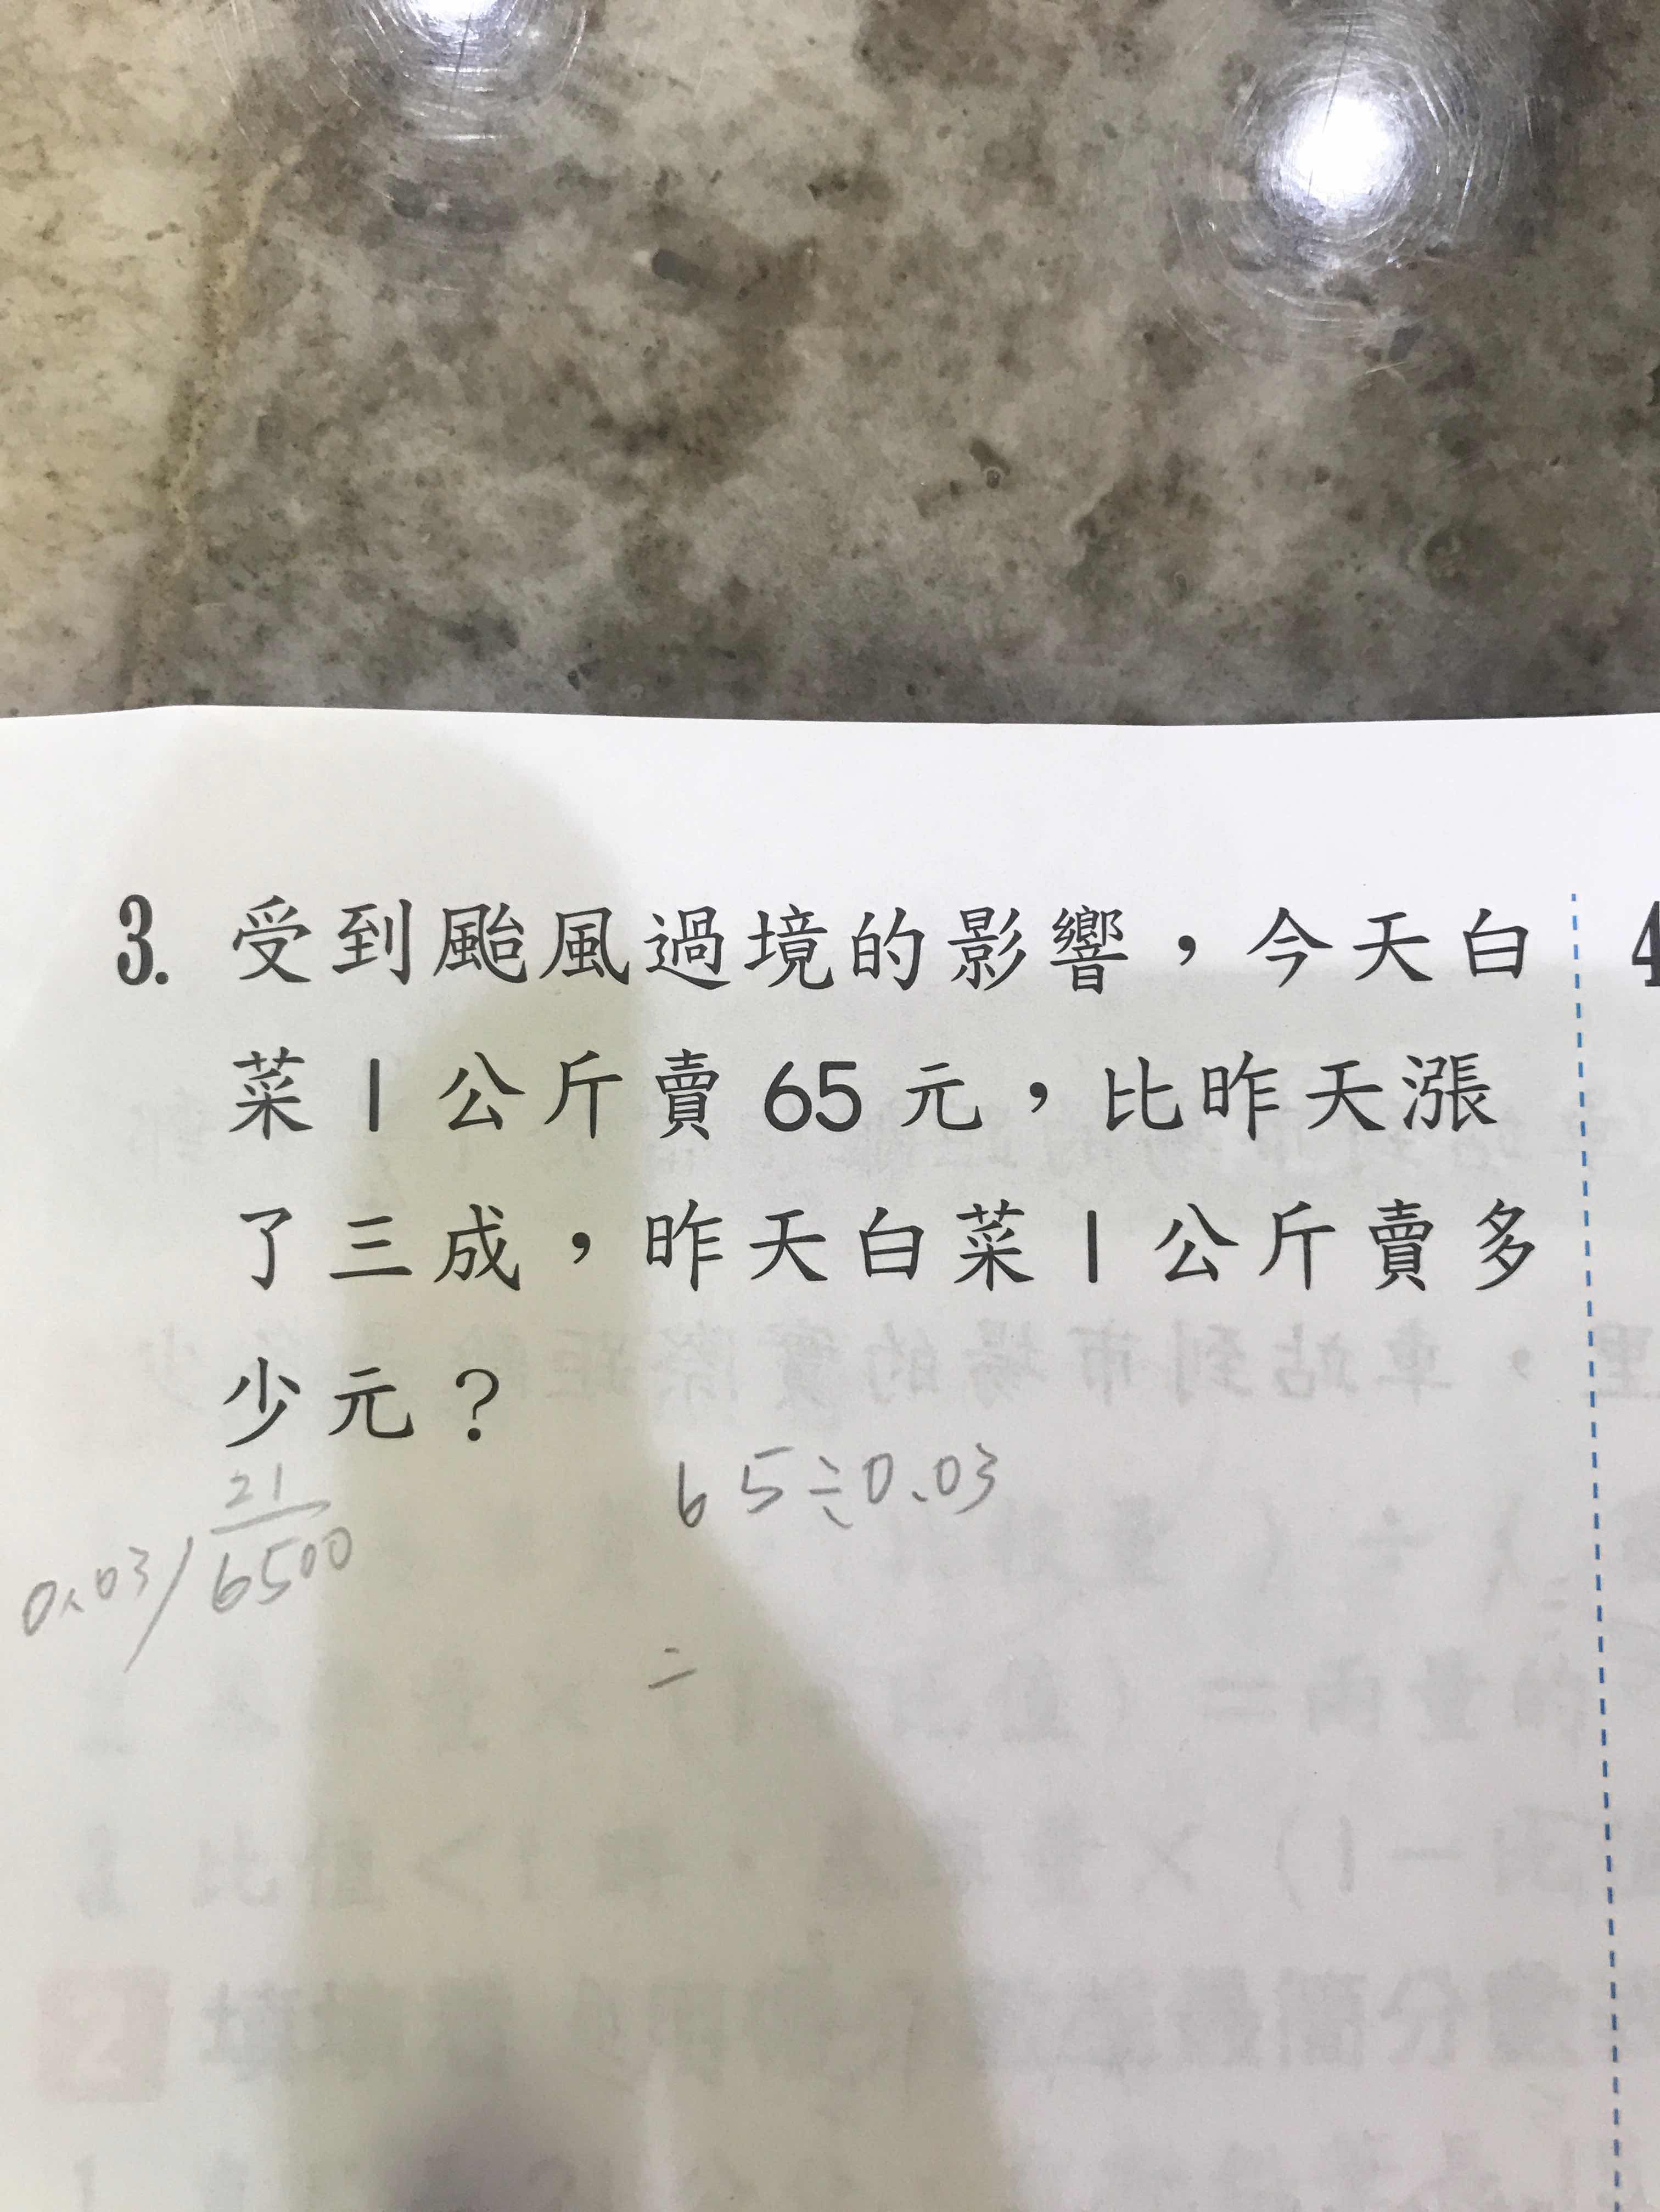 3. 受到颱風過境的影響，今天白
菜1公斤賣65元，比昨天漲
了三成，昨天白菜1公斤賣多
少元？
65÷0.03
21
0.03/6500
=
4